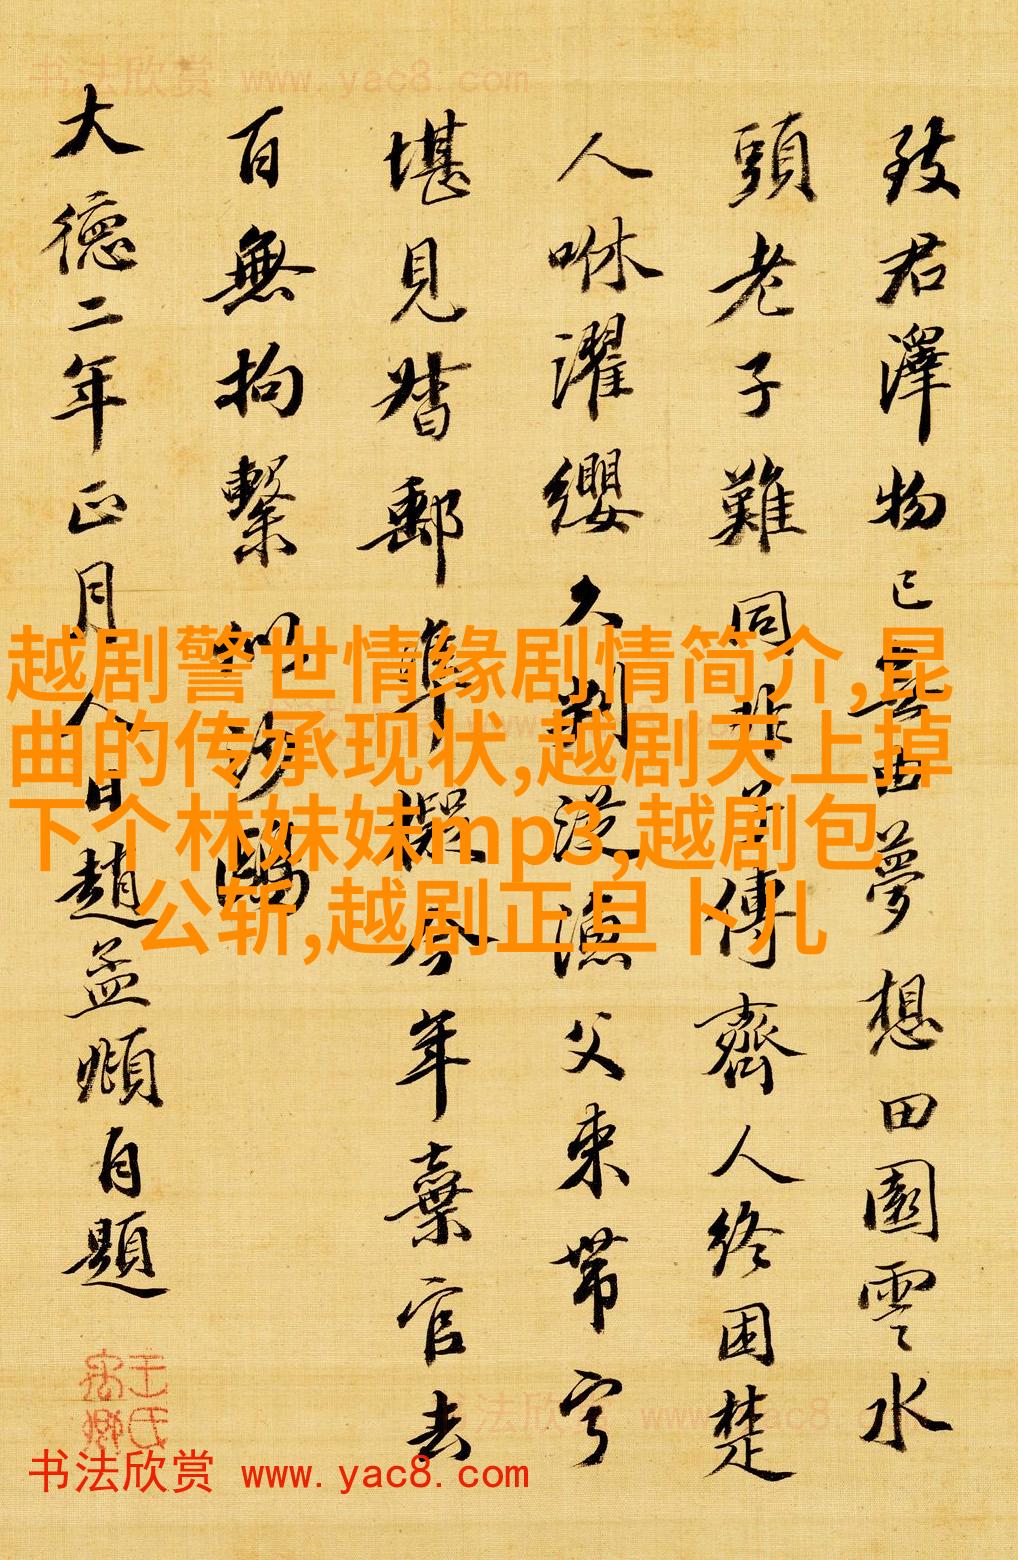 书法欣赏 www.yac8.com
致君澤物已無由夢想田園雲水
頭老子難同非子傳齊人終困楚
人咻濯纓久判從漁父束帶寧
堪見督郵準擬今年棄官去
百無拘繫似沙鷗
大德二年正月人日趙孟頫自題
越剧警世情缘剧情简介,昆
曲的传承现状,越剧天上掉
下个林妹妹mp3,越剧包
公斩,越剧正旦卜儿
王氏
禹卿
书法欣赏 www.yac8.com